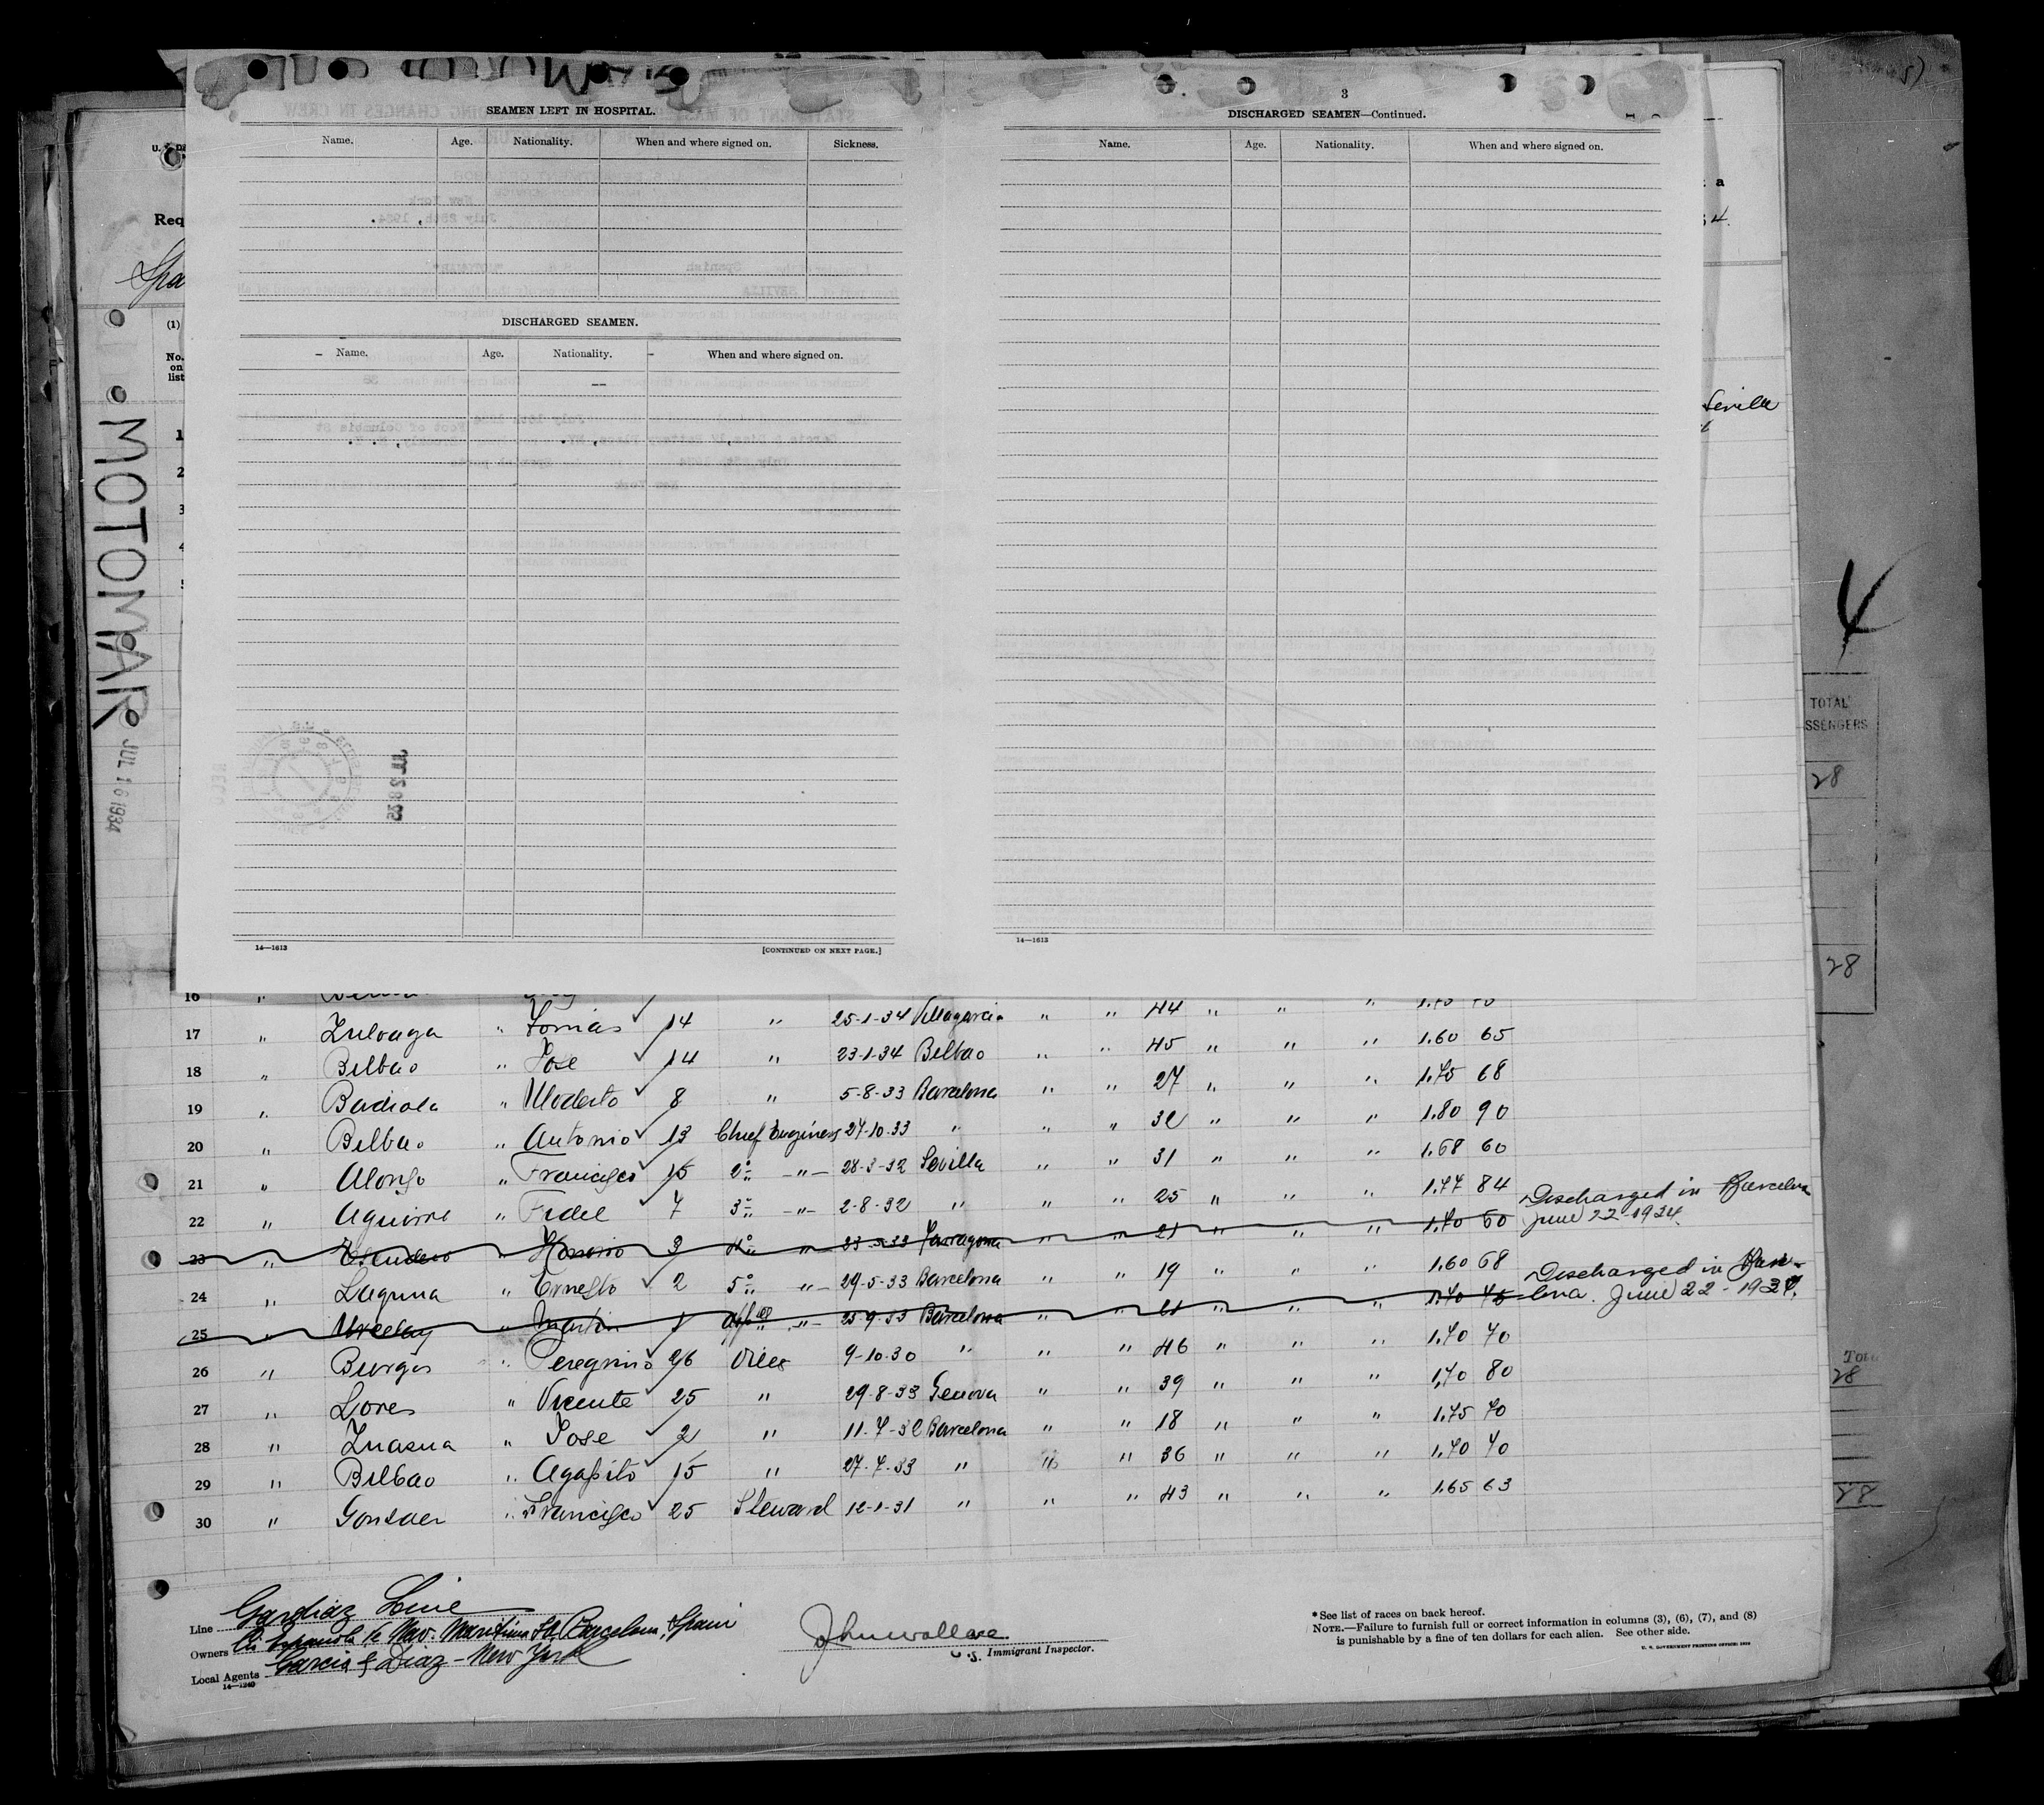 SEAMEN LEFT IN HOSPITAL.
Name. Age. Nationality. When and where signed on. Sickness.
DISCHARGED SEAMEN.
Name. Age. Nationality. When and where signed on.
14—1613 [CONTINUED ON NEXT PAGE.]
3
DISCHARGED SEAMEN—Continued.
Name. Age. Nationality. When and where signed on.
14—1613
Req
Spa
(1)
No.
on
list
1
2
3
4
MOTOMAR
JUL 16 1934
a
Sevilla
4
TOTAL
SSENGERS
28
28
28
16 "
17 " Zuloaga " Tomas 14 " 25-1-34 Villagarcia " " 44 " " "
18 " Bilbao " Jose 14 " 23-1-34 Bilbao " " 45 " " " 1.60 65
19 " Badiola " Modesto 8 " 5-8-33 Barcelona " " 27 " " " 1.75 68
20 " Bilbao " Antonio 13 Chief Engineer 27-10-33 " " " 32 " " " 1.80 90
21 " Alonso " Francisco 15 2º " 28-3-32 Sevilla " " 31 " " " 1.68 60
22 " Aguirre " Fidel 7 3º " 2-8-32 " " " 25 " " " 1.77 84
23 " " 3 4º " Tarragona " " 21 " " " 1.70 60 Discharged in Barcelona June 22-1934
24 " Laguna " Ernesto 2 5º " 29-5-33 Barcelona " " 19 " " " 1.60 68
25 " " Martin 1 " 25-9-33 Barcelona " " " " " 1.70 Discharged in Barcelona. June 22-1934.
26 " Burgos " Peregrino 26 Oiler 9-10-30 " " " 46 " " " 1.70 70
27 " Lores " Vicente 25 " 29-8-33 Genova " " 39 " " " 1.70 80
28 " Znasua " Jose 2 " 11-7-32 Barcelona " " 18 " " " 1.75 70
29 " Bilbao " Agapito 15 " 27-7-33 " " " 36 " " " 1.70 70
30 " " Francisco 25 Steward 12-1-31 " " " 43 " " " 1.65 63
Line Gardiaz Line
Owners Cia Española de Nav. Maritima SA Barcelona Spain
Local Agents Garcia & Diaz - New York
14—1240
John Wallace
U.S. Immigrant Inspector.
*See list of races on back hereof.
NOTE.—Failure to furnish full or correct information in columns (3), (6), (7), and (8)
is punishable by a fine of ten dollars for each alien. See other side.
U. S. GOVERNMENT PRINTING OFFICE